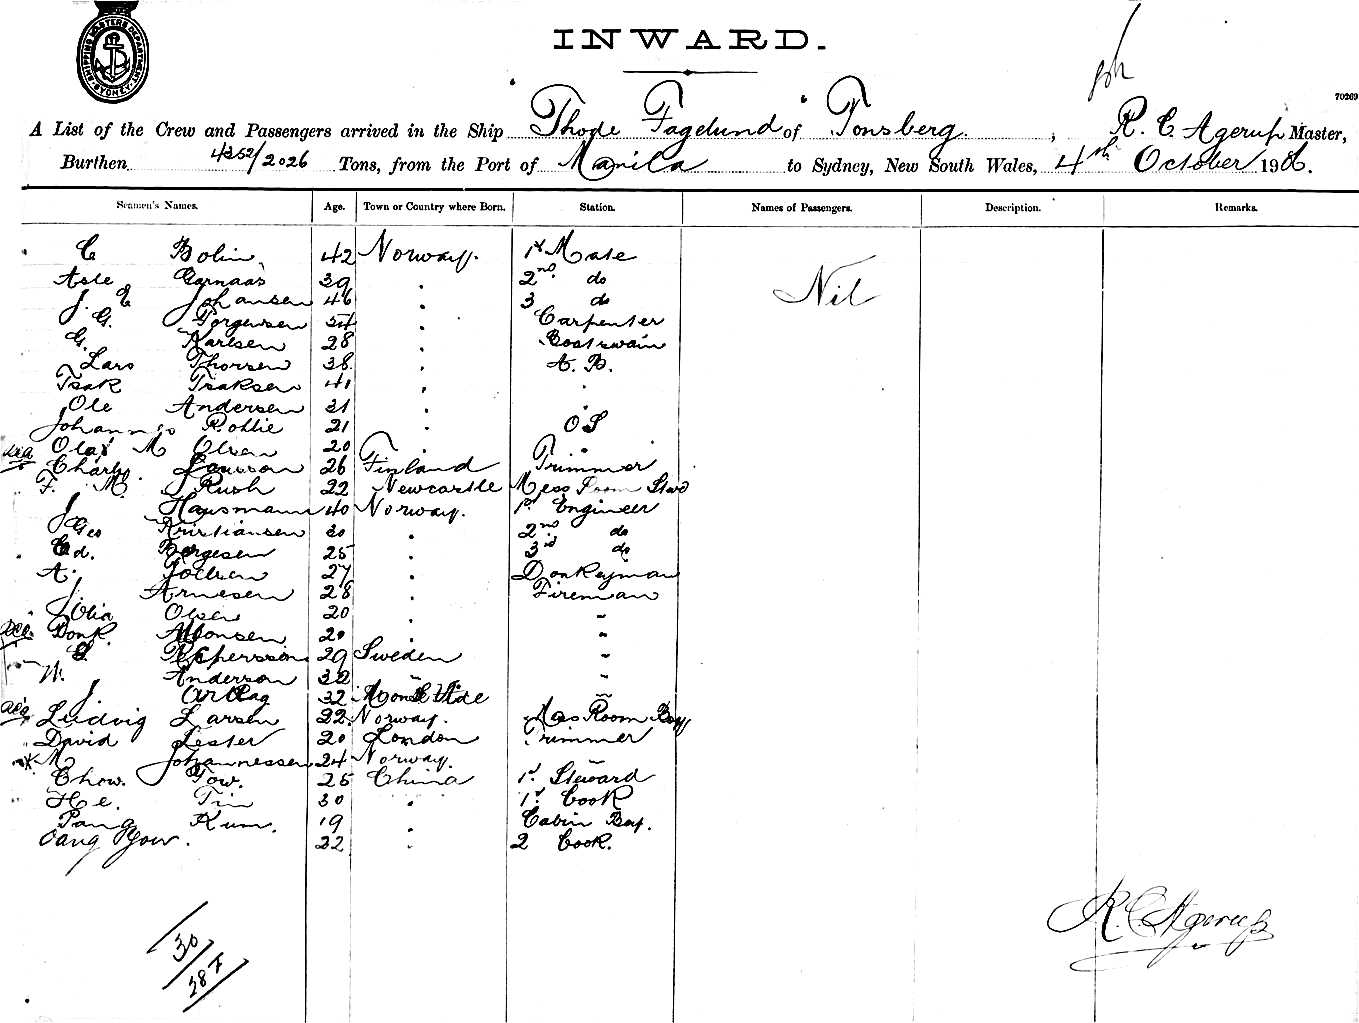 SHIPPING MASTERS DEPARTMENT SYDNEY
INWARD.
70269
A List of the Crew and Passengers arrived in the Ship Thode Fagelund of Tonsberg, R. C. Agerup Master,
Burthen 4352/2026 Tons, from the Port of Manila to Sydney, New South Wales, 4th October 1906.
Seamen's Names. Age. Town or Country where Born. Station. Names of Passengers. Description. Remarks.
C Bolin 42 Norway. 1st Mate
Nil
Asle Garnaas 39 " 2nd do
J. C Johansen 46 " 3 do
J. G. Torgersen 54 " Carpenter
G. Karlsen 28 " Boatswain
Lars Thorsen 38 " A. B.
Isak Isaksen 41 " "
Ole Andersen 31 " "
Johannes Rohlie 21 " O S
Olaf M Olsen 20 " "
Charls 26 Finland Trimmer
F. M. Rush 22 Newcastle Mess Room Stwd
J Hausmann 40 Norway. 1st Engineer
Geo Kristiansen 30 " 2nd do
Ed. Borgesen 25 " 3rd do
A. 27 " Donkeyman
J Arnesen 28 " Fireman
Olsen 20 " "
Alfonsen 20 " "
29 Sweden "
W. Anderson 32 " "
J 32
Ludvig Larsen 22 Norway. Mess Room Boy
David Lester 20 London Trimmer
M Johannessen 24 Norway. "
Chow. Tow. 25 China 1st Steward
He. Tin 30 " 1st Cook
Pang Kum. 19 " Cabin Boy.
22 " 2 Cook.
R. C Agerup
30